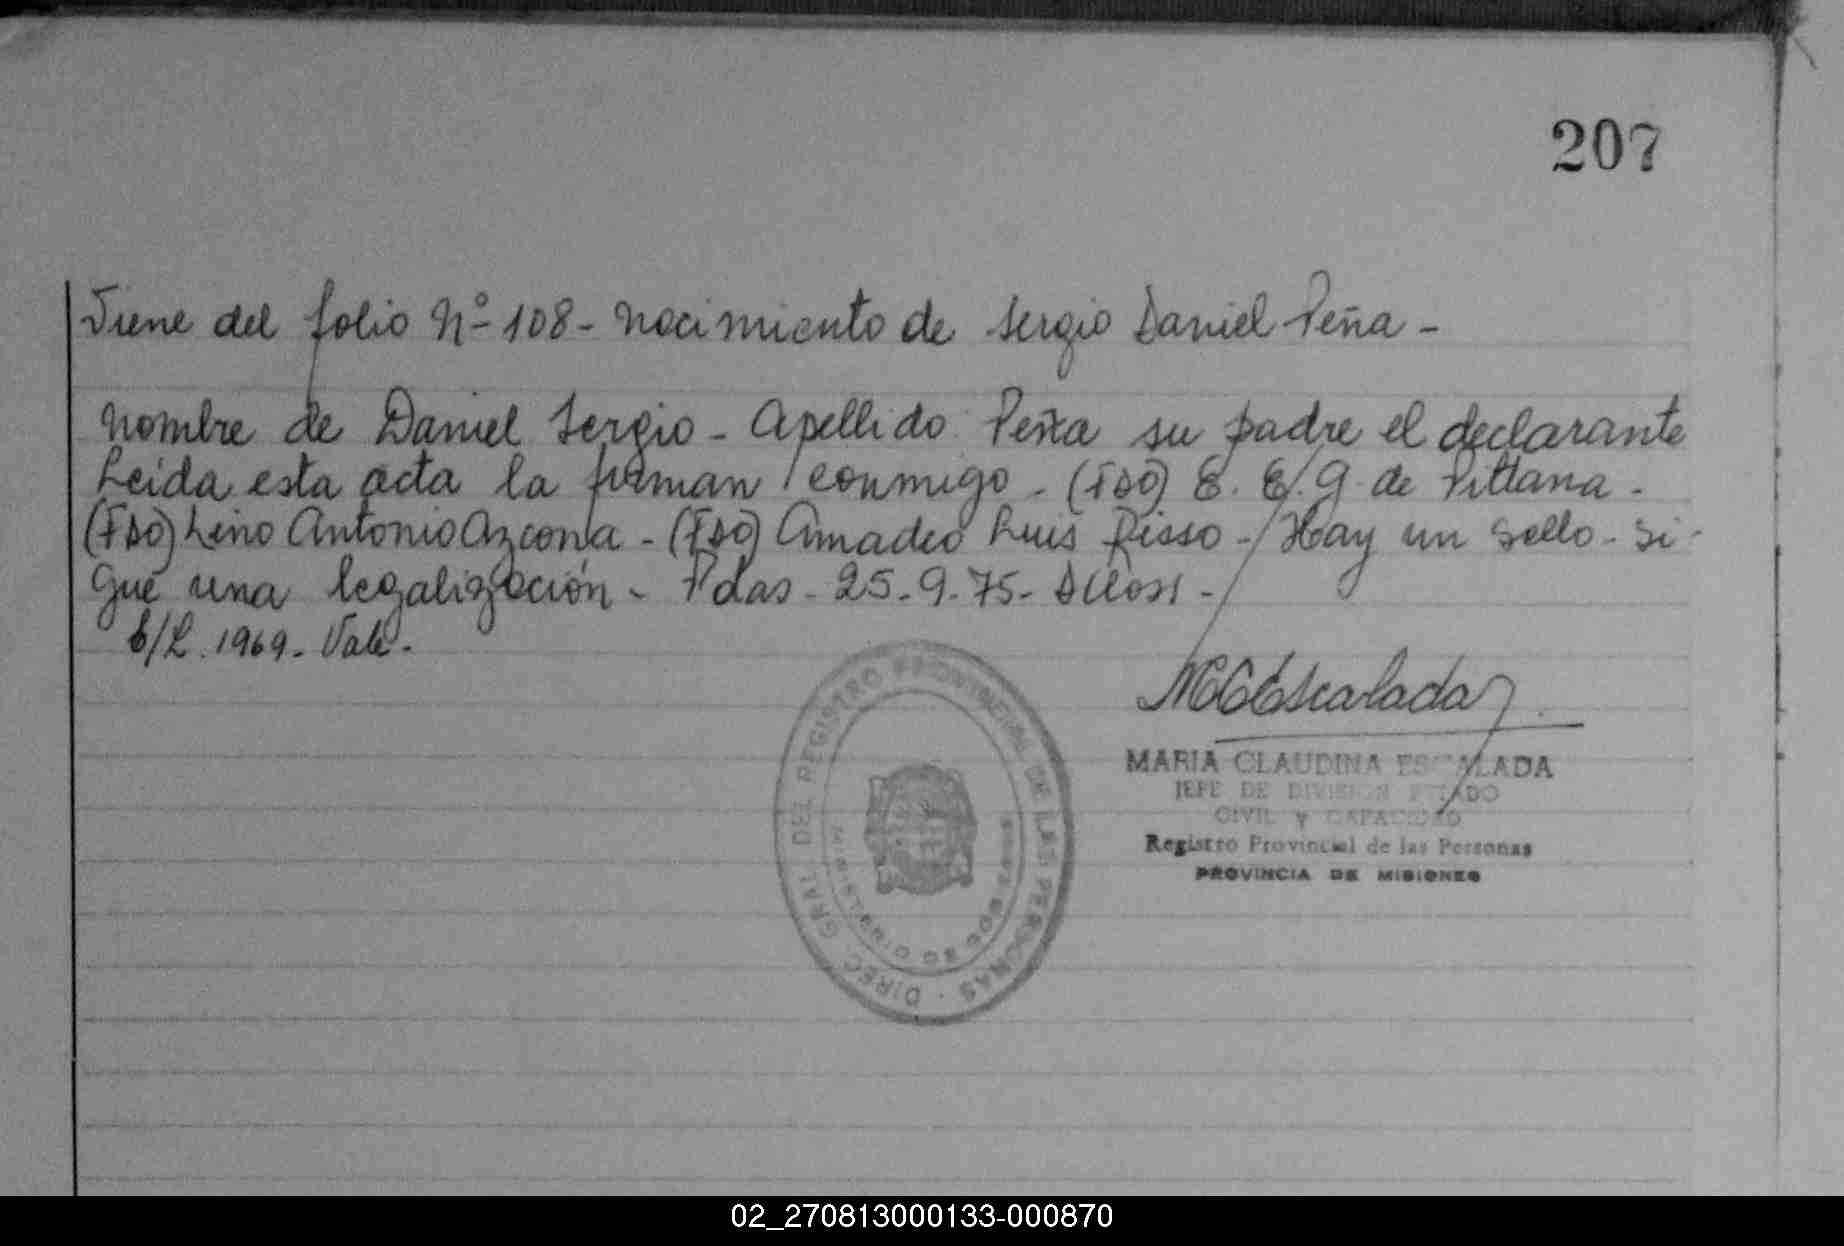 207
Viene del folio Nº 108 - Nacimiento de Sergio Daniel Peña -
Nombre de Daniel Sergio - Apellido Peña su padre el declarante
Leida esta acta la firman conmigo - (FDO) E. E. G. de Pittana -
(FDO) Lino Antonio Azcona - (FDO) Amadeo Luis Risso - Hay un sello - Si-
gue una legalización - Pdas - 25-9-75 -
E/L. 1969 - Vale -
MCEscalada
MARIA CLAUDINA ESCALADA
JEFE DE DIVISION ESTADO
CIVIL Y CAPACIDAD
Registro Provincial de las Personas
PROVINCIA DE MISIONES
DIREC. GRAL. DEL REGISTRO PROVINCIAL DE LAS PERSONAS
02_270813000133-000870